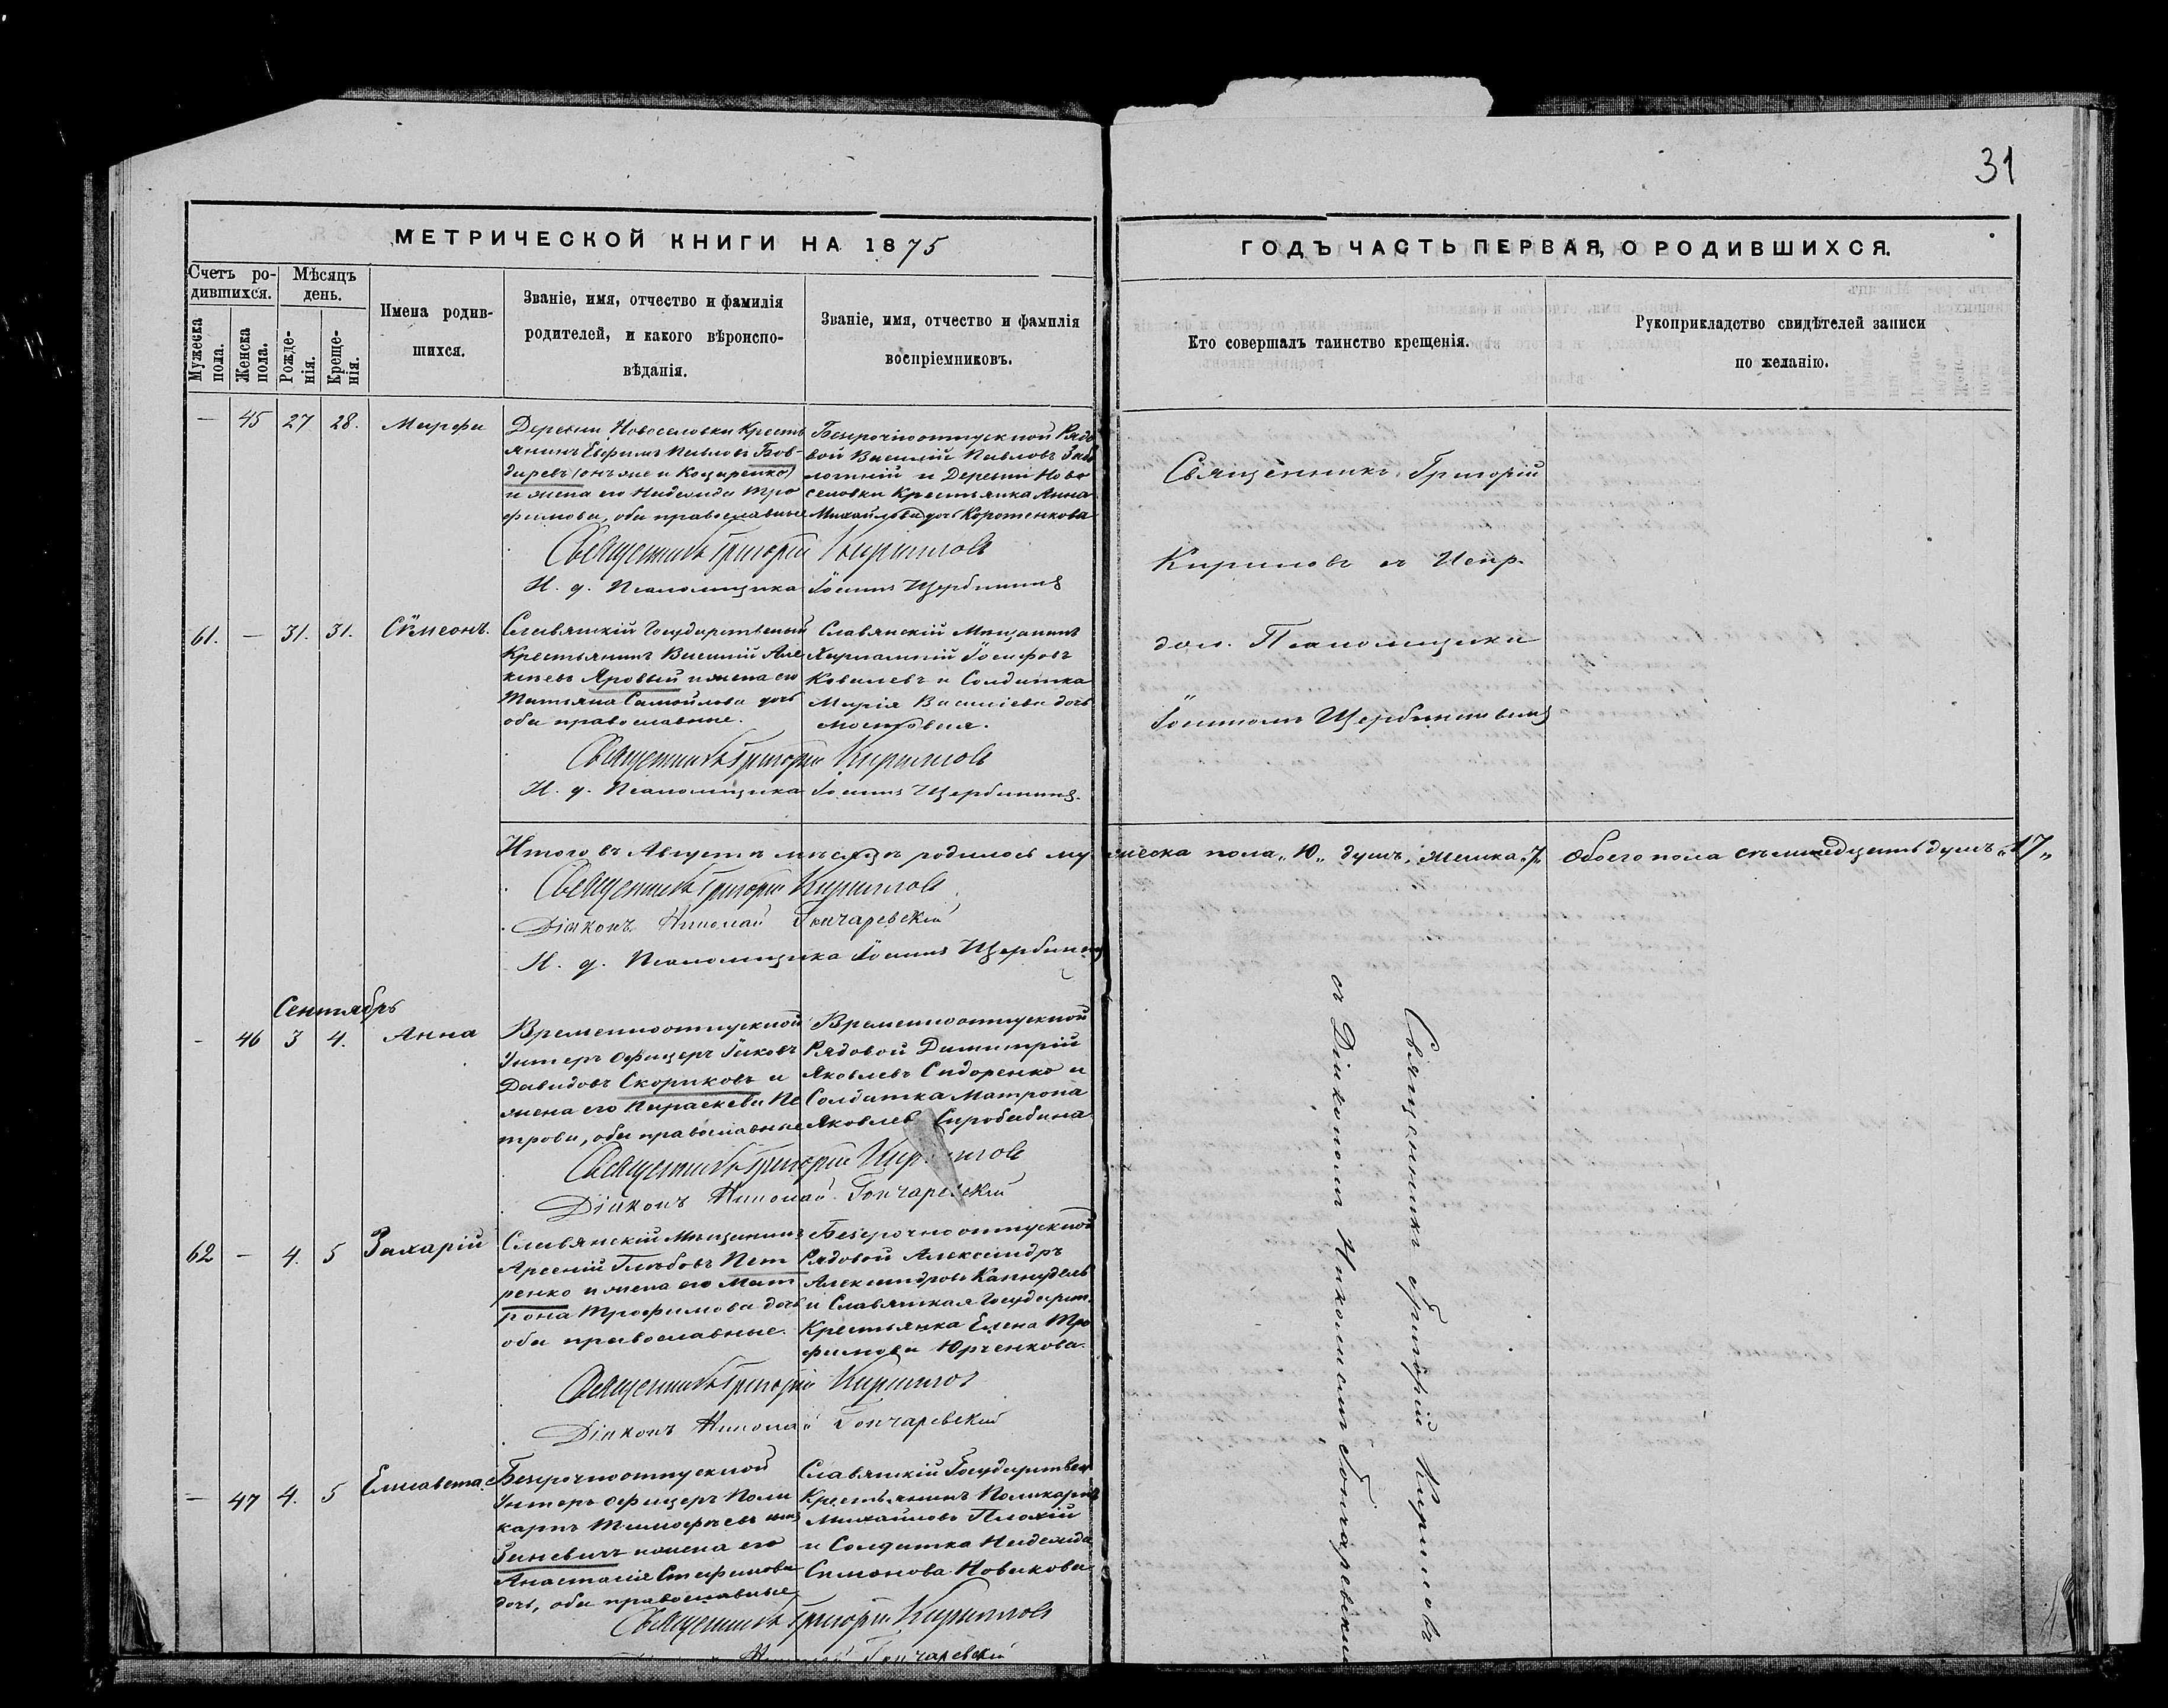 31
МЕТРИЧЕСКОЙ КНИГИ НА 1875
ГОДЪ ЧАСТЬ ПЕРВАЯ, О РОДИВШИХСЯ.
Счетъ ро-
дившихся.
Мѣсяцъ
день.
Мужеска
пола.
Женска
пола.
Рожде-
нія.
Креще-
нія.
Имена родив-
шихся.
Званіе, имя, отчество и фамилія
родителей, и какого вѣроиспо-
вѣданія.
Званіе, имя, отчество и фамилія
воспріемниковъ.
Кто совершалъ таинство крещенія.
Рукоприкладство свидѣтелей записи
по желанію.
— 45 27 28. Марфа
Деревни Новоселовки Кресть
янинъ Евфимъ Павловъ Бов-
дыревъ (онъ же и Коцаренко)
и жена его Надежда Тро
фимова, оба православные
Безсрочноотпускной Рядо
вой Василій Павловъ Забо
лотній и Деревни Ново
селовки Крестьянка Анна
Михайлова дочь Коротенкова
Священникъ Григорій Кириловъ
И. д. Псаломщика Іоаннъ Щербининъ
Священникъ Григорій
Кириловъ съ Испр.
дол. Псаломщика
Іоанномъ Щербининымъ
61. — 31. 31. Сѵмеонъ.
Славянскій Государственный
Крестьянинъ Василій Але
ксѣевъ Яровый и жена его
Татьяна Самойлова дочь
оба православные.
Славянскій Мѣщанинъ
Харлампій Іосифовъ
Ковалевъ и Солдатка
Марія Василіева дочь
Мостовая.
Священникъ Григорій Кириловъ
И. д. Псаломщика Іоаннъ Щербининъ.
Итого въ Августѣ мѣсяцѣ родилось мужеска пола „10„ душъ, женска „7„ Обоего пола Семьнадцать душъ „17„
Священникъ Григорій Кириловъ
Діаконъ Николай Гончаревскій
И. д. Псаломщика Іоаннъ Щербининъ
Сентябрь
- 46 3 4. Анна
Временноотпускной
Унтеръ Офицеръ Іаковъ
Давидовъ Скориковъ и
жена его Параскева Пе
трова, оба православные
Временноотпускной
Рядовой Димитрій
Яковлевъ Сидоренко и
Солдатка Матрона
Яковлева Скробабина
Священникъ Григорій Кириловъ
Діаконъ Николай Гончаревскій
62 — 4. 5 Захарій
Славянскій Мѣщанинъ
Арсеній Глѣбовъ Пет
ренко и жена его Мат
рона Трофимова дочь
оба православные.
Безсрочноотпускной
Рядовой Александръ
Александровъ
и Славянская Государст.
Крестьянка Елена Тро
фимова Юрченкова.
Священникъ Григорій Кириловъ
Діаконъ Николай Гончаревскій
— 47 4. 5 Елисавета.
Безсрочноотпускной
Унтеръ Офицеръ Поли
карпъ Тимофѣевъ
Зиневичъ и жена его
Анастасія Стефанова
дочь, оба православные
Славянскій Государствен
Крестьянинъ Поликарпъ
Михайловъ Плохій
и Солдатка Надежда
Симонова Новикова
Священникъ Григорій Кириловъ
Николай Гончаревскій
Священникъ Григорій Кириловъ
съ Діакономъ Николаемъ Гончаревскимъ